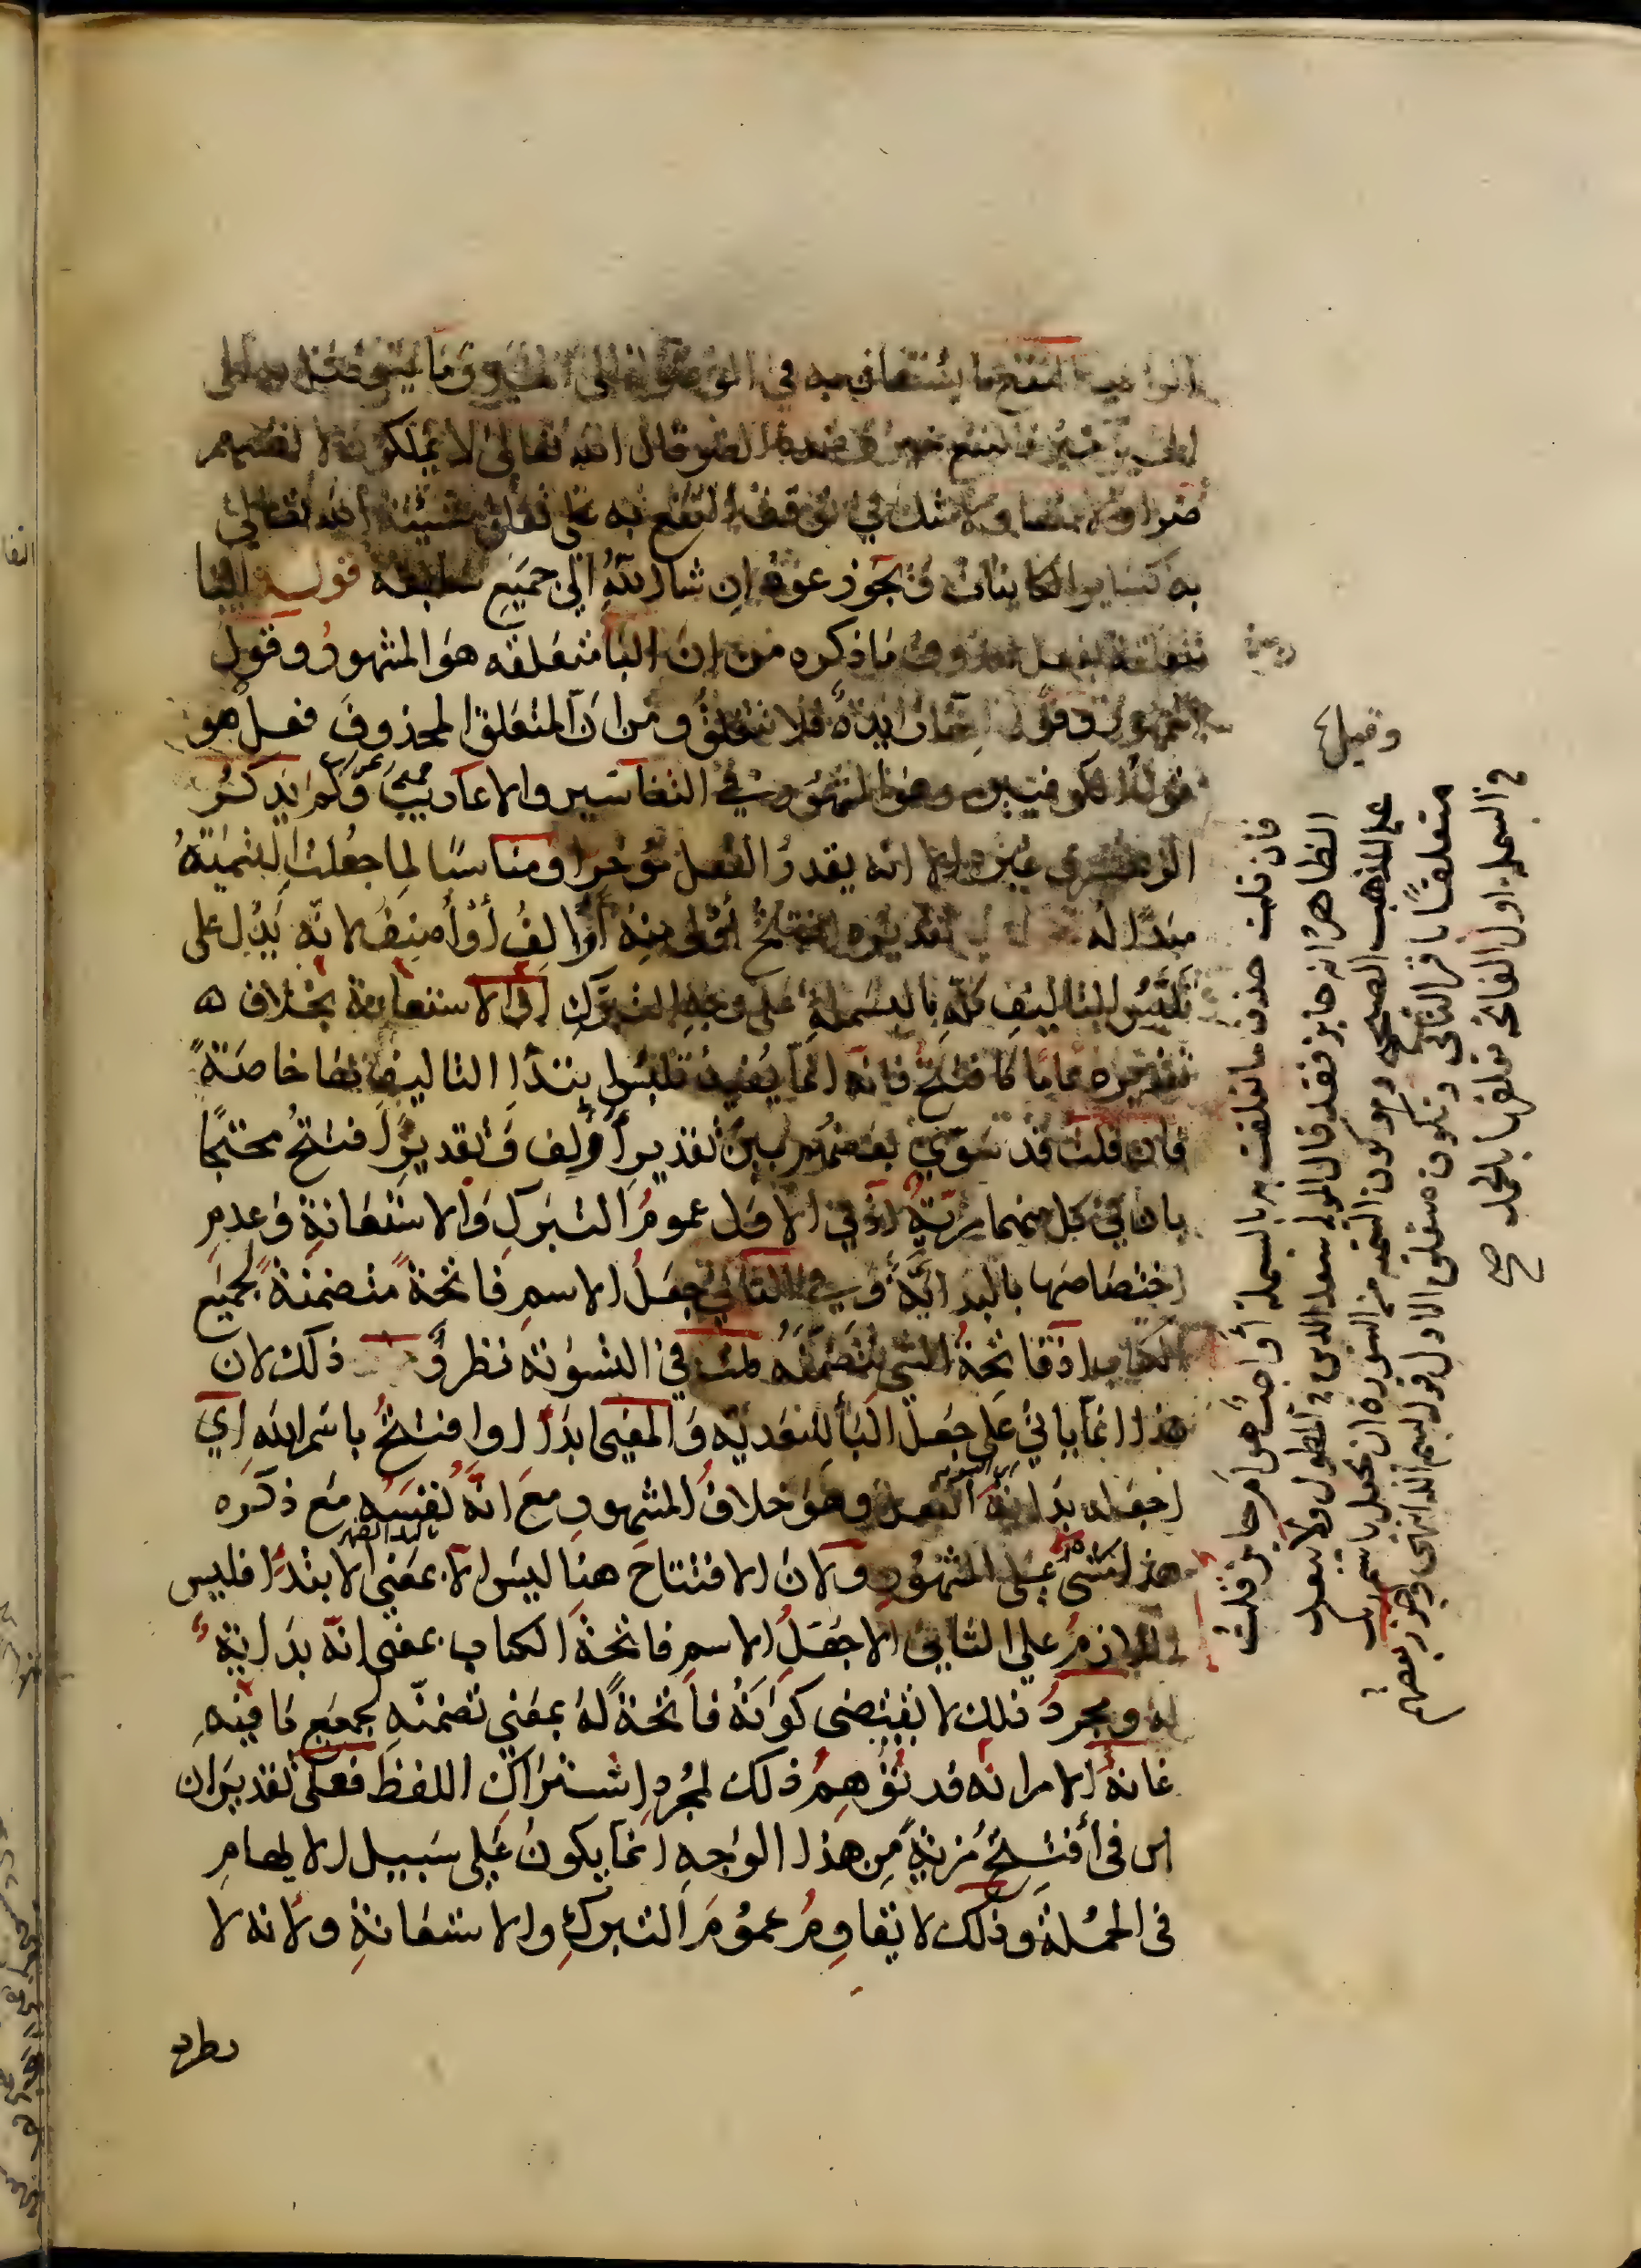 النفع ما يستعان به في الوصول إلى الخير وما يتوصل به إلى
الخير خير فالنفع خير وضده الضر قال الله تعالى لا يملكون لانفسهم
ضرا ولا نفعا ولا شك في توقف النفع به على تعلق مشيئة الله تعالى
به كساير الكاينات ويجوز عوده ان شاء الله إلى جميع سابقه قوله البا
متعلقة بفعل محذوف ما ذكره من ان البا متعلقه هو المشهور وقول
زايدة فلا تتعلق ومن ان المتعلق المحذوف فعل هو
قول الكوفيين وهو المشهور في التفاسير والاعاريب ولم يذكر
الزمخشري غيره الا انه يقدر الفعل مؤخرا ومناسبا لما جعلت التسمية
مبدأ له تقديره افتتح أولى منه أؤلف أو أصنف لانه يدل على
تلبس التاليف كله بالبسملة على وجه التبرك او الاستعانة بخلاف
تقديره عاما كافتتح فانه انما يفيد تلبس ابتدا التاليف بها خاصة
فان قلت قد سوى بعضهم بين تقدير أؤلف وتقدير افتتح محتجا
بان في كل منهما مزية اذ في الاول عموم التبرك والاستعانة وعدم
اختصاصها بالبداية وفي الثاني جعل الاسم فاتحة متضمنة لجميع
الكتاب اذ فاتحة الشي تتضمنه قلت في التسوية نظر و ذلك لان
هذا انما ياتي على جعل البا للتعدية والمعنى ابدا او افتتح باسم الله اي
اجعله بداية الفعل وهو خلاف المشهور مع انه نفسه مع ذكره
هذا مشى على المشهور ولان الافتتاح هنا ليس الا بمعنى الابتدا فليس
اللازم على الثاني الا جعل الاسم فاتحة الكتاب بمعنى انه بداية
له ومجرد ذلك لا يقتضى كونه فاتحة له بمعنى تضمنه لجميع ما فيه
غاية الامر انه قد يوهم ذلك لمجرد اشتراك اللفظ فعلى تقدير ان
في أفتتح مزية من هذا الوجه انما يكون على سبيل الايهام
في الجملة وذلك لا يقاوم عموم التبرك والاستعانة ولانه لا
يطرد
وقيل
فان قلت حذف ما تعلقت به با البسملة أواجب هو ام جايز قلت
الظاهر انه جايز فقد قال المولى سعد الدين في المطول ولا يبعد
على المذهب الصحيح وهو كون التسمية من السورة ان يجعل باسم ربك
متعلقا باقرا الثاني ويكون متعلق الاول قوله بسم الله انتهى وجوز بعضهم
في البسملة اول الفاتحة تعلقها بالحمد صح